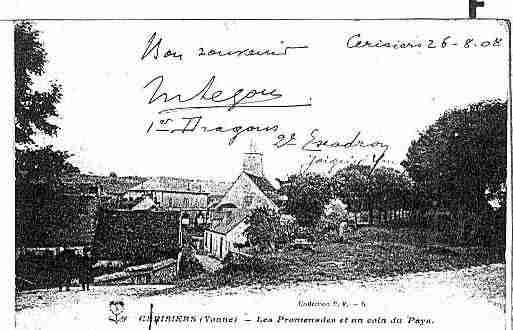 F
Bon souvenir
Cerisiers 26-8-08
1er Dragons
2e Escadron
Joigny
Collection P. F. - 5
CERISIERS (Yonne) - Les Promenades et un coin du Pays.